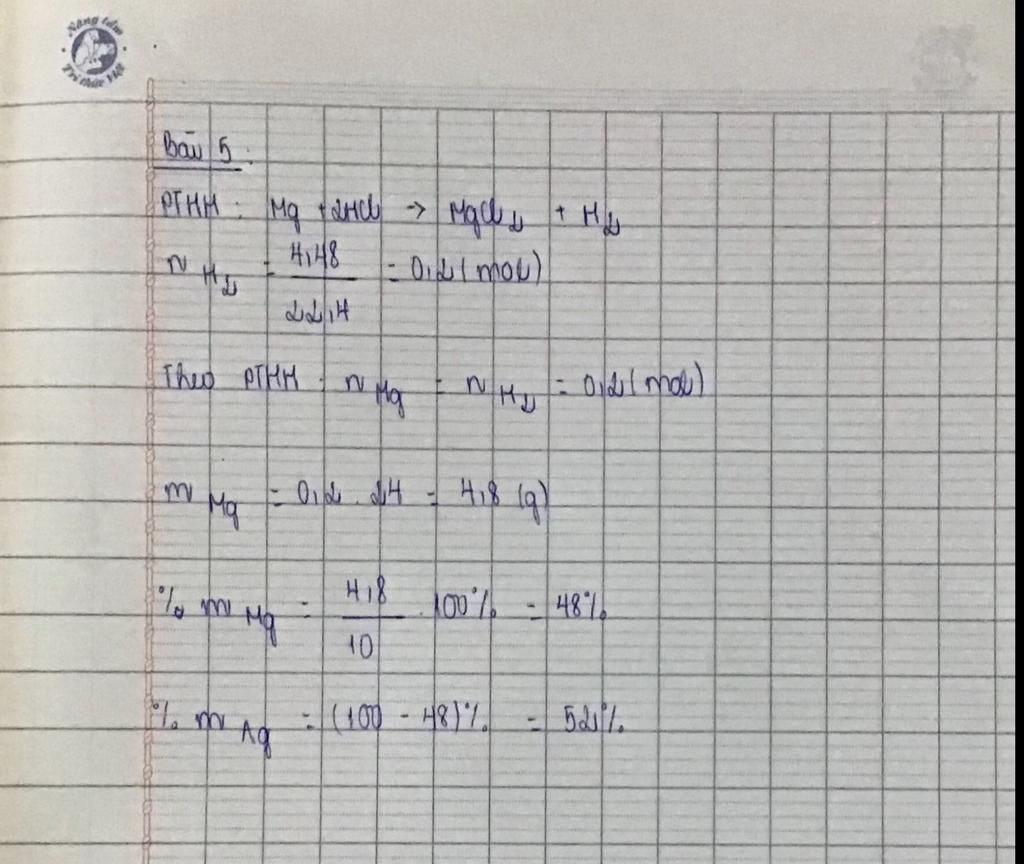 Nâng tầm
Trí thức Việt
Bài 5:
PTHH: Mg + 2HCl -> MgCl2 + H2
n H2 = 4,48 / 22,4 = 0,2 (mol)
Theo PTHH: n Mg = n H2 = 0,2 (mol)
m Mg = 0,2 . 24 = 4,8 (g)
% m Mg = 4,8 / 10 . 100% = 48%
% m Ag = (100 - 48)% = 52%